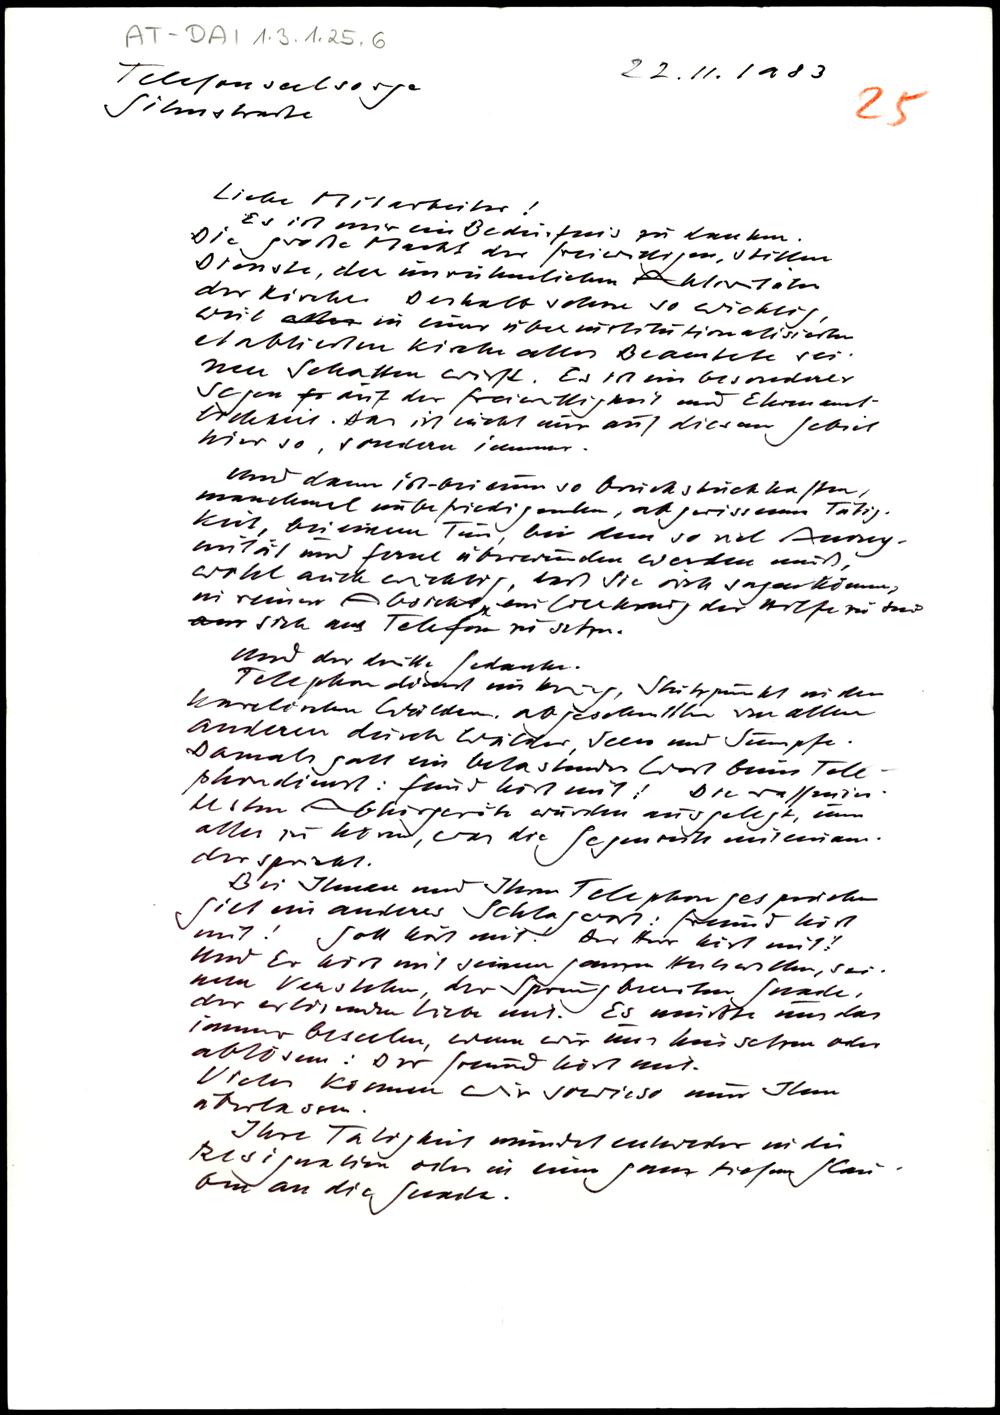 AT-DAI 1.3.1.25.6
Telefonseelsorge
Silmstraße
22.11.1983
25
Liebe Mitarbeiter!
Es ist mir ein Bedürfnis zu danken.
Die große Macht der freiwilligen, stillen
Dienste, der unrühmlichen Aktivitäten
der Kirche. Deshalb schon so wichtig,
weil alles in einer überinstitutionalisierten
etablierten Kirche alles Beamtete sei-
nen Schatten wirft. Es ist ein besonderer
Segen auf der Freiwilligkeit und Ehrenamt-
lichkeit. Das ist nicht nur auf diesem Gebiet
hier so, sondern immer.
Und dann ist bei einem so bruchstückhaften,
manchmal unbefriedigenden, abgerissenen Tätig-
keit, bei einem Tun, bei dem so viel Anony-
mität und Ferne überwunden werden muß,
wohl auch wichtig, daß Sie sich sagen können,
in reiner Absicht, um der Hilfe zu
nur sich ans Telefon zu setzen.
Und der dritte Gedanke.
Telephondienst im Krieg, Stützpunkt in den
karelischen Wäldern. abgeschnitten von allen
anderen durch Wälder, Seen und Sümpfe.
Damals galt ein belastendes Wort beim Tele-
phondienst: Feind hört mit! Die raffinier-
testen Abhörgeräte wurden ausgelegt, um
alles zu hören, was die Gegenseite miteinan-
der spricht.
Bei Ihnen und Ihren Telephongesprächen
gilt ein anderes Schlagwort: Freund hört
mit! Gott hört mit! Der Herr hört mit!
Und Er hört mit seinem ganzen Heilswillen, sei-
nem Verstehen, der sprungbereiten Gnade,
der erlösenden Liebe mit. Es müßte uns das
immer beseelen, wenn wir uns hinsetzen oder
ablösen: Der Freund hört mit.
Vieles können wir sowieso nur Ihm
überlassen.
Ihre Tätigkeit mündet entweder in die
Resignation oder in einen ganz tiefen Glau-
ben an die Gnade.